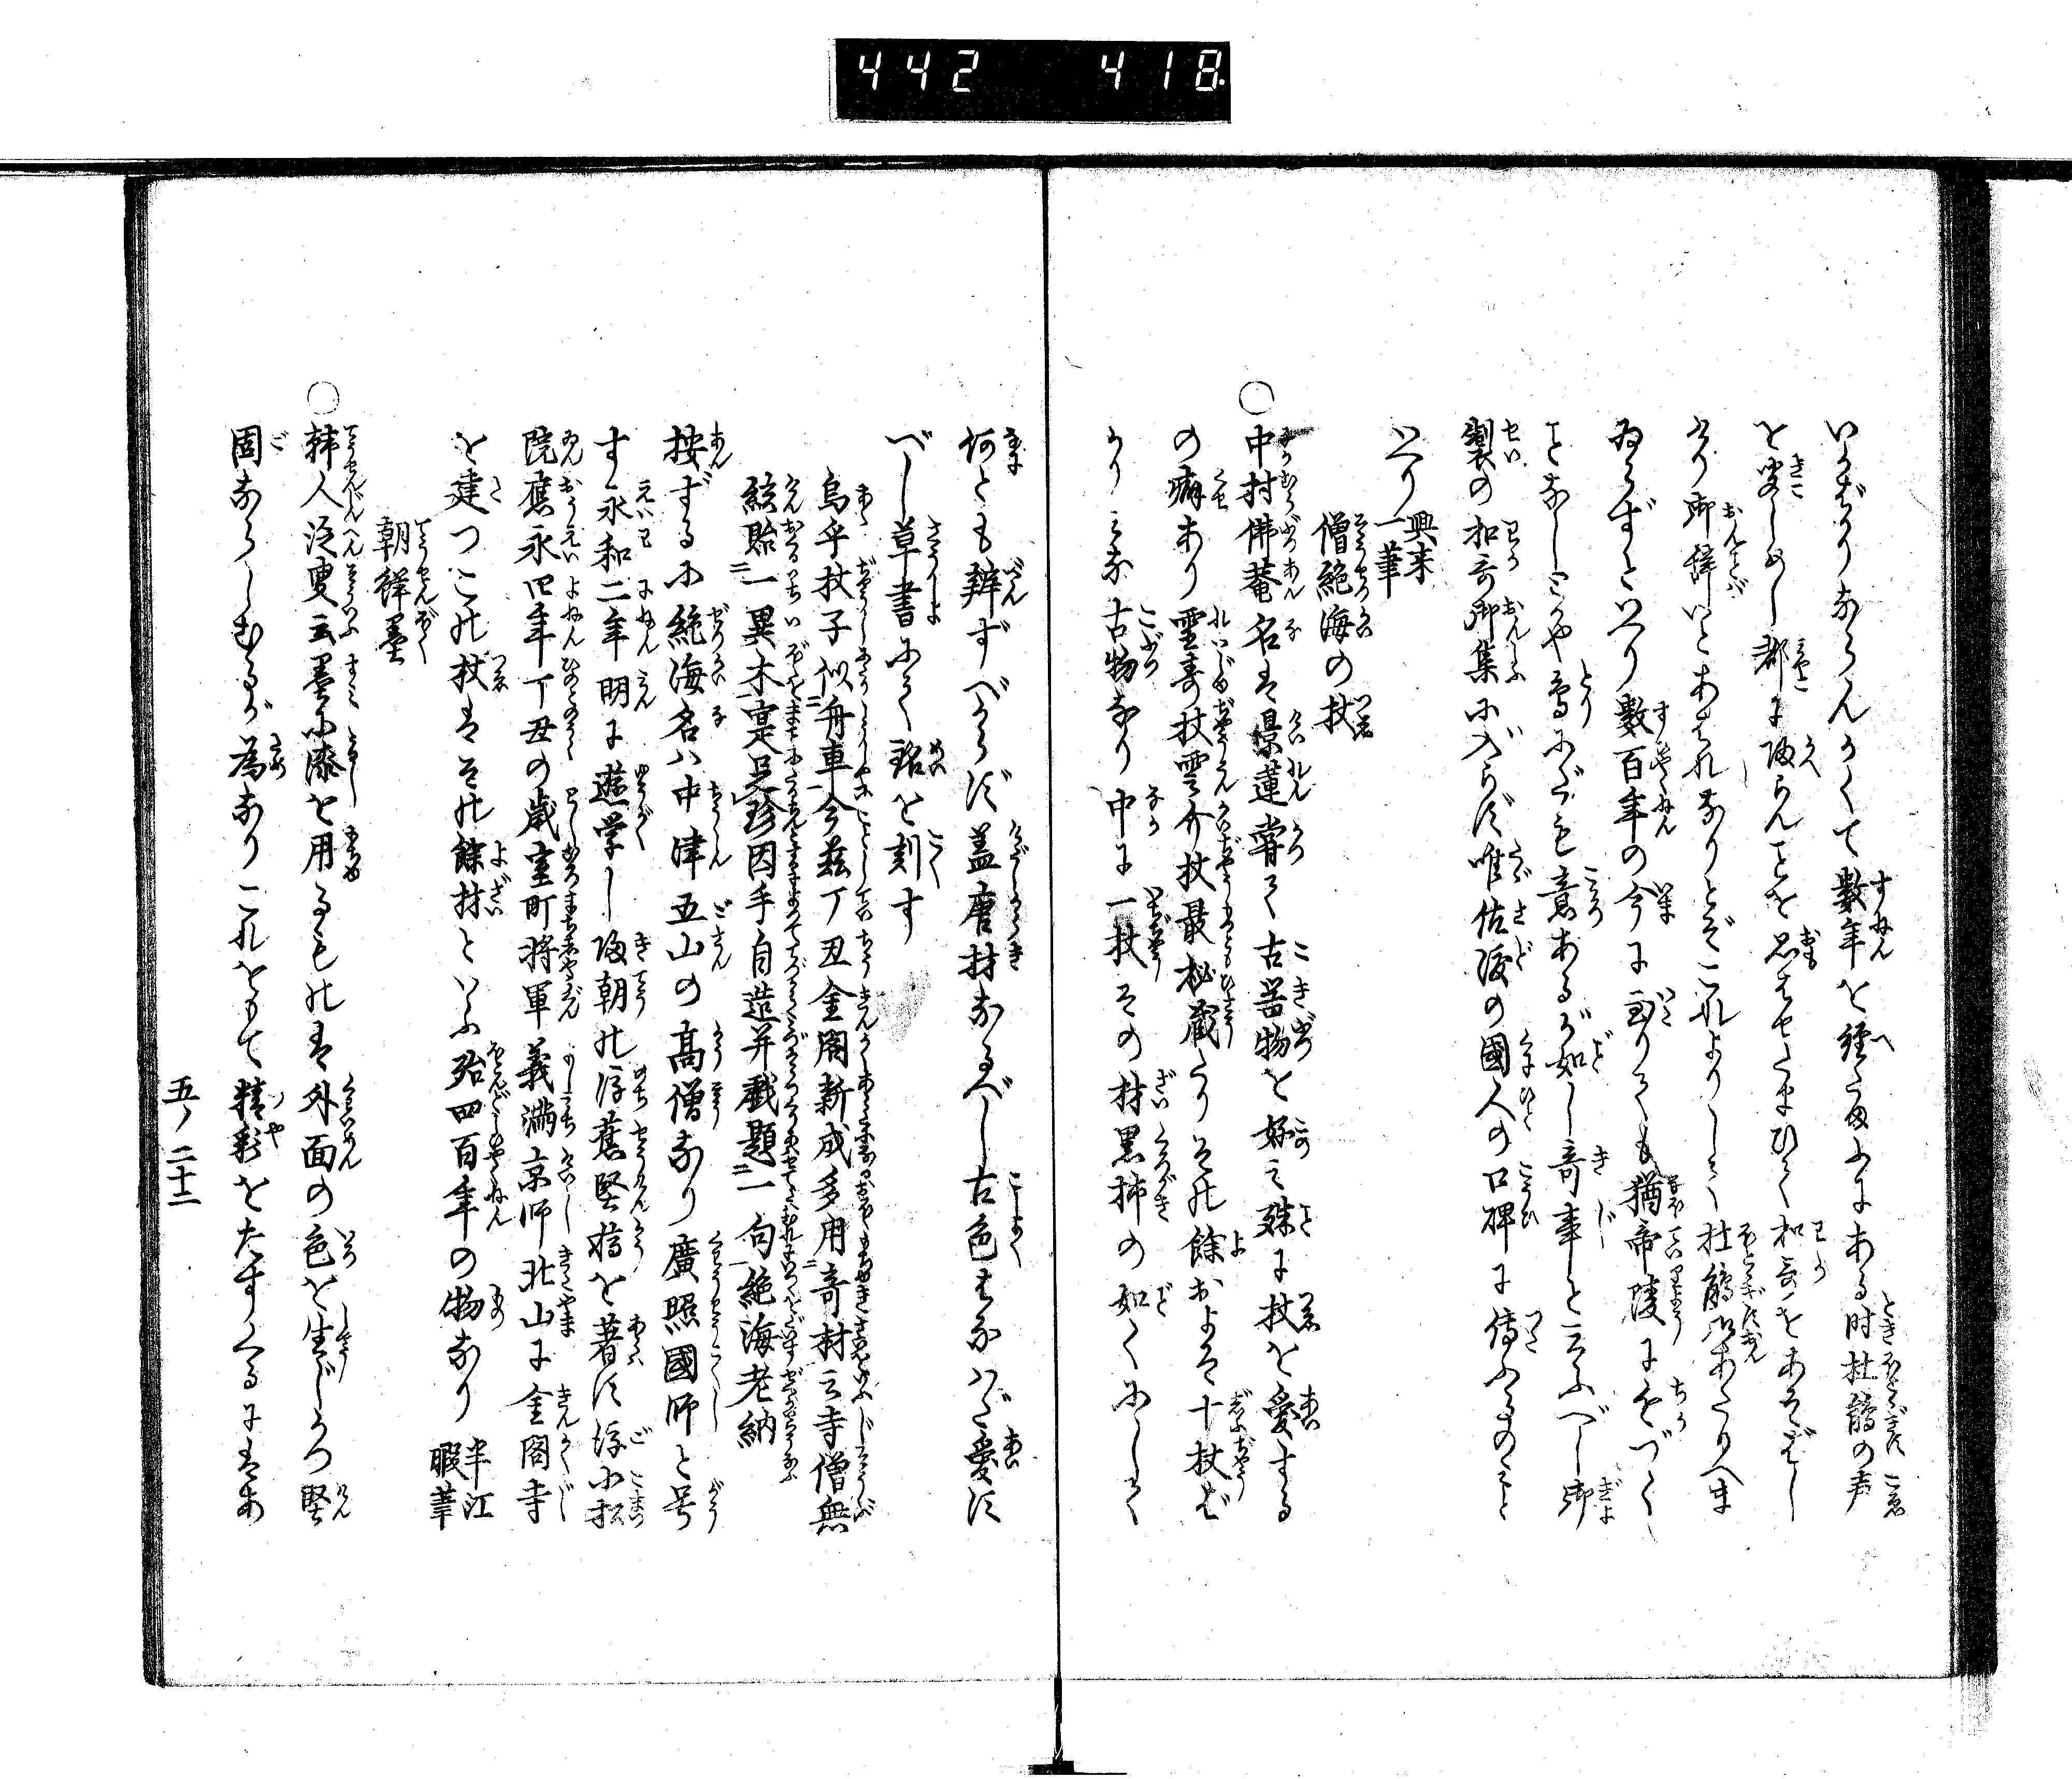 442 418
いかばかりならんかくて數年を經たまふにある时杜鵑の声
を聞しめし都に帰らんことを思はせたまひて和哥をあそばし
けり御辞いとあはれなりとぞこれよりして杜鵑此あたりへま
ゐらずといへり數百年の今に到りても猶帝陵にちかづく
ことなしとかや鳥にだも意あるが如し奇事といふべし御
製の和哥御集に入らず唯佐渡の國人の口碑に傳ふるのみと
いへり 興来一筆
僧絶海の杖
○中村佛菴名は景蓮嘗て古器物を好み殊に杖を愛する
の癖あり靈寿杖雲介杖最秘藏たりその餘およそ十杖ば
かりみな古物なり中に一杖その材黒柿の如くにして
何とも辨ずべからず蓋唐材なるべし古色はなはだ愛す
べし草書にて銘を刻す
烏乎杖子似舟車今茲丁丑金閣新成多用奇材云寺僧無
絃貽一異木寔足珍因手自造并戯題一句絶海老衲
按ずるに絶海名ハ中津五山の髙僧なり廣照國師と号
す永和二年明に遊学し帰朝の後蕉堅稿を著す後小松
院應永四年丁丑の歳室町将軍義満京师北山に金閣寺
を建つこの杖はその餘材といふ殆四百年の物なり 半江暇筆
朝鮮墨
○韓人泛叟云墨に漆を用るものは外面の色を生じかつ堅
固ならしむるが為なりこれをもて精彩をたすくるにはあ
五ノ二十二